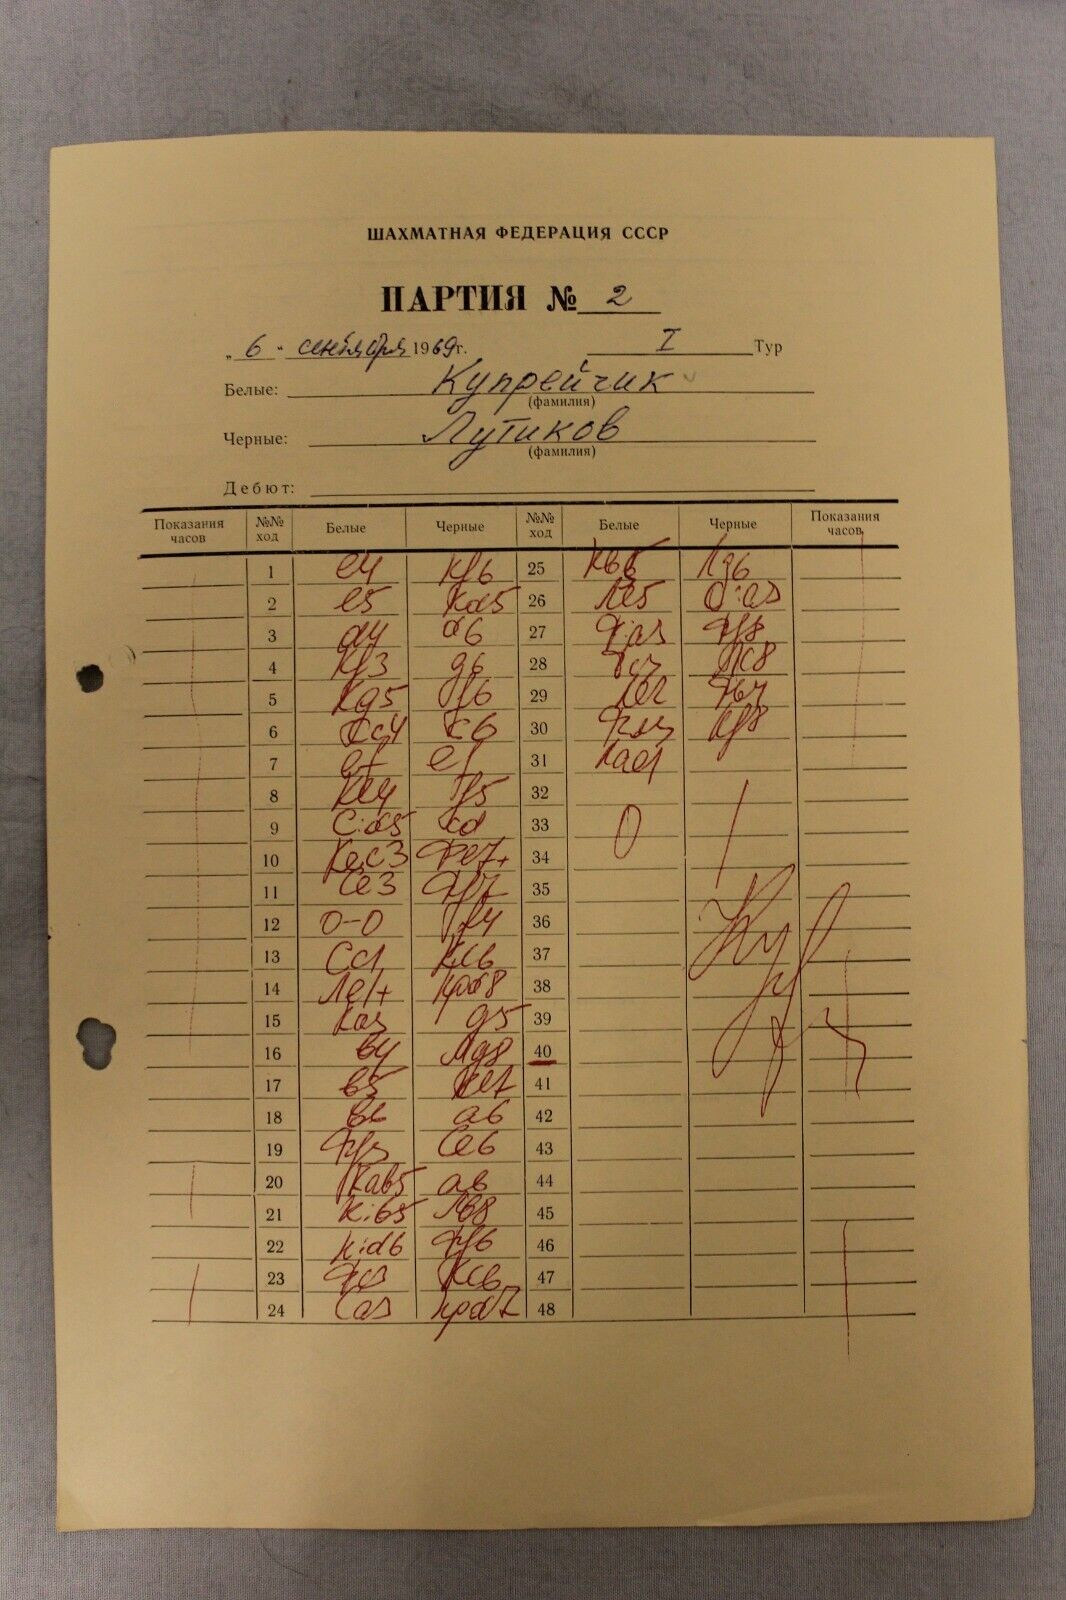 ШАХМАТНАЯ ФЕДЕРАЦИЯ СССР
ПАРТИЯ № 2
„ 6 " сентября 1969 г. I Тур
Белые: Купрейчик
(фамилия)
Черные: Лутиков
(фамилия)
Дебют:
Показания часов №№ ход Белые Черные №№ ход Белые Черные Показания часов
1 e4 Кf6 25 Кb6 Лg6
2 e5 Кd5 26 Лe5
3 d4 d6 27 Ф:a5 Фf8
4 Кf3 g6 28 Лc8
5 Кg5 f6 29
6 Сc4 c6 30 Кf8
7 ef ef 31 Лad1
8 Кe4 f5 32
9 С:d5 cd 33 0 1
10 Кec3 Фe7+ 34
11 Сe3 Фf7 35
12 0-0 f4 36
13 Сc1 Кc6 37
14 Лe1+ Крd8 38
15 Кa3 g5 39
16 b4 Лg8 40
17 b5 Кe7 41
18 a6 42
19 Фf3 Сe6 43
20 Кab5 ab 44
21 К:b5 Лb8 45
22 К:d6 Фf6 46
23 Кc6 47
24 Сa3 Крd7 48